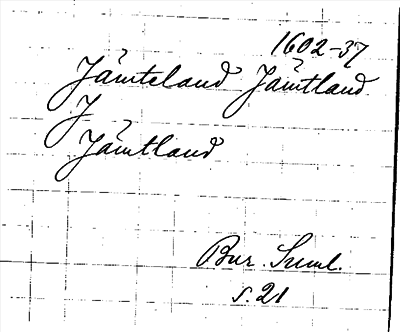 1602-37
Jämteland Jämtland
J
Jämtland
Bur. Suml.
s. 21